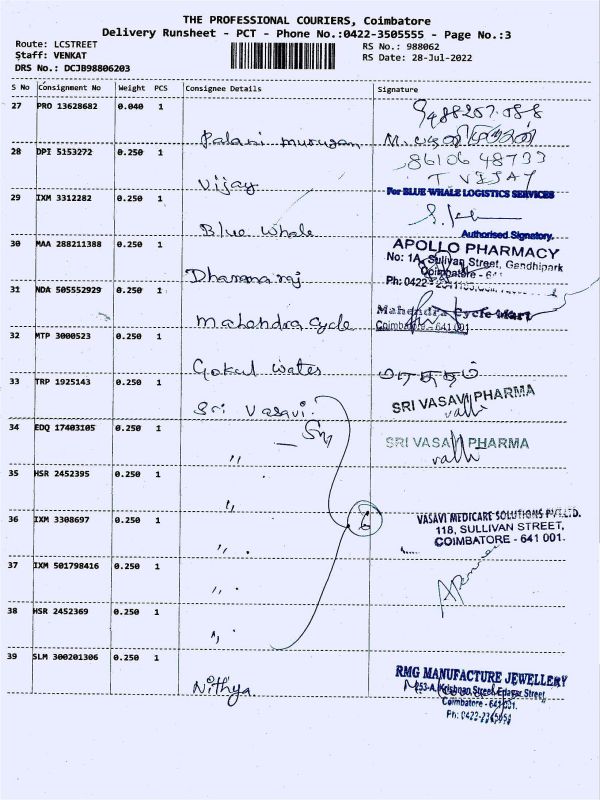 THE PROFESSIONAL COURIERS, Coimbatore
Delivery Runsheet - PCT - Phone No.:0422-3505555 - Page No.:3
Route: LCSTREET
Staff: VENKAT
DRS No.: DCJB98806203
RS No.: 988062
RS Date: 28-Jul-2022
S No Consignment No Weight PCS Consignee Details Signature
27 PRO 13628682 0.040 1
Palani murugan
28 DPI 5153272 0.250 1
86106 48733
Vijay T VIJAY
29 IXM 3312282 0.250 1
For BLUE WHALE LOGISTICS SERVICES
Blue Whale Authorised Signatory.
30 MAA 288211388 0.250 1
APOLLO PHARMACY
No: 1A, Sullivan Street, Gandhipark
Coimbatore - 641
Dhanmaraj Ph: 0422-
31 NDA 505552929 0.250 1
Mahendra Cycle Mahendra Cycle Mart
Coimbatore - 641 001.
32 MTP 3000523 0.250 1
Gokul Wates
33 TRP 1925143 0.250 1
Sri Vasavi SRI VASAVI PHARMA
valli
34 EDQ 17403105 0.250 1
SRI VASAVI PHARMA
" valli
35 HSR 2452395 0.250 1
"
36 IXM 3308697 0.250 1
6
VASAVI MEDICARE SOLUTIONS PVT.LTD.
118, SULLIVAN STREET,
COIMBATORE - 641 001.
"
37 IXM 501798416 0.250 1
"
38 HSR 2452369 0.250 1
"
39 SLM 300201306 0.250 1
Nithya. RMG MANUFACTURE JEWELLERY
253-A, Krishnan Street, Edayar Street,
Coimbatore - 641 001.
Ph: 0422-